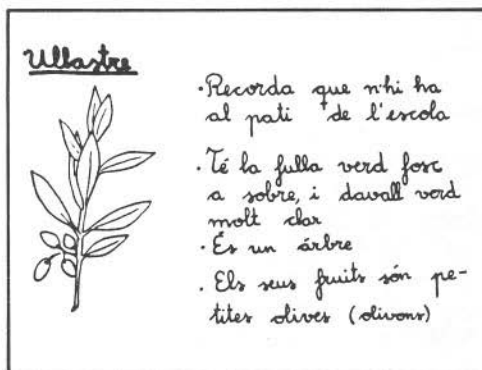 Ullastre
·Recorda que n'hi ha
al pati de l'escola
·Té la fulla verd fosc
a sobre, i davall verd
molt clar
·És un árbre
·Els seus fruits són pe-
tites olives (olivons)